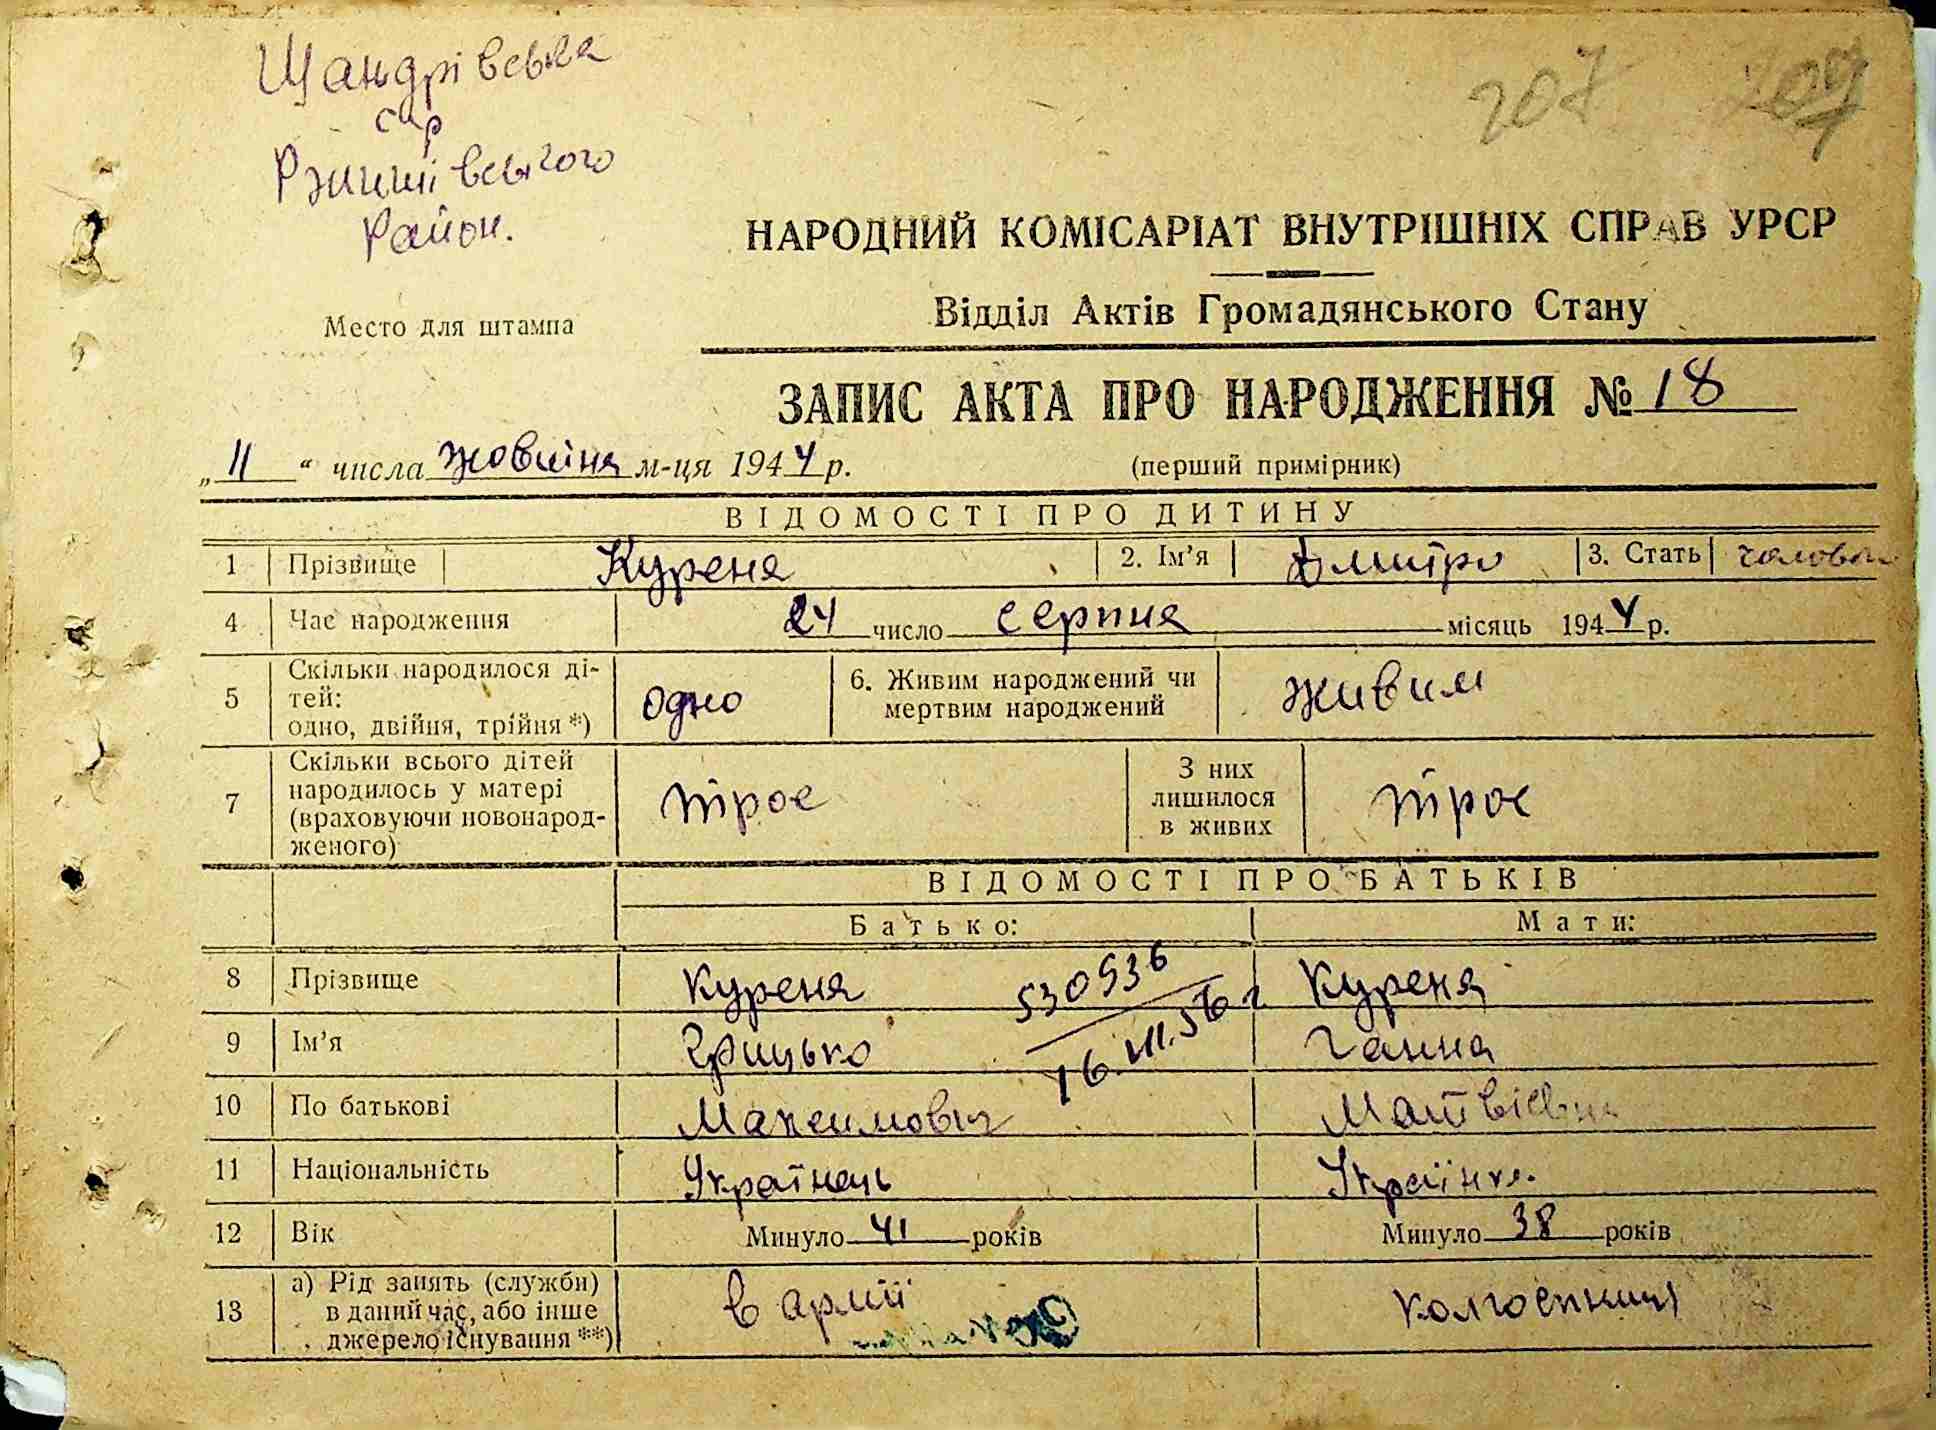 Щандрівська
с/р
Ржищівського
Район.
207 207
НАРОДНИЙ КОМІСАРІАТ ВНУТРІШНІХ СПРАВ УРСР
Відділ Актів Громадянського Стану
Место для штампа
ЗАПИС АКТА ПРО НАРОДЖЕННЯ № 18
„11“ числа жовтня м-ця 1944 р. (перший примірник)
ВІДОМОСТІ ПРО ДИТИНУ
1 Прізвище Куреня 2. Ім’я Дмитро 3. Стать
4 Час народження 24 число серпня місяць 1944 р.
5 Скільки народилося ді-
тей:
одно, двійня, трійня *) одно 6. Живим народжений чи
мертвим народжений живим
7 Скільки всього дітей
народилось у матері
(враховуючи новонарод-
женого) троє З них
лишилося
в живих троє
ВІДОМОСТІ ПРО БАТЬКІВ
Батько: Мати:
8 Прізвище Куреня Куреня
530536
16.VII.56 г
9 Ім’я Грицько Ганна
10 По батькові Максимович Матвіївна
11 Національність Українець Українка.
12 Вік Минуло 41 років Минуло 38 років
13 а) Рід занять (служби)
в даний час, або інше
джерело існування **) в армії колгоспниця